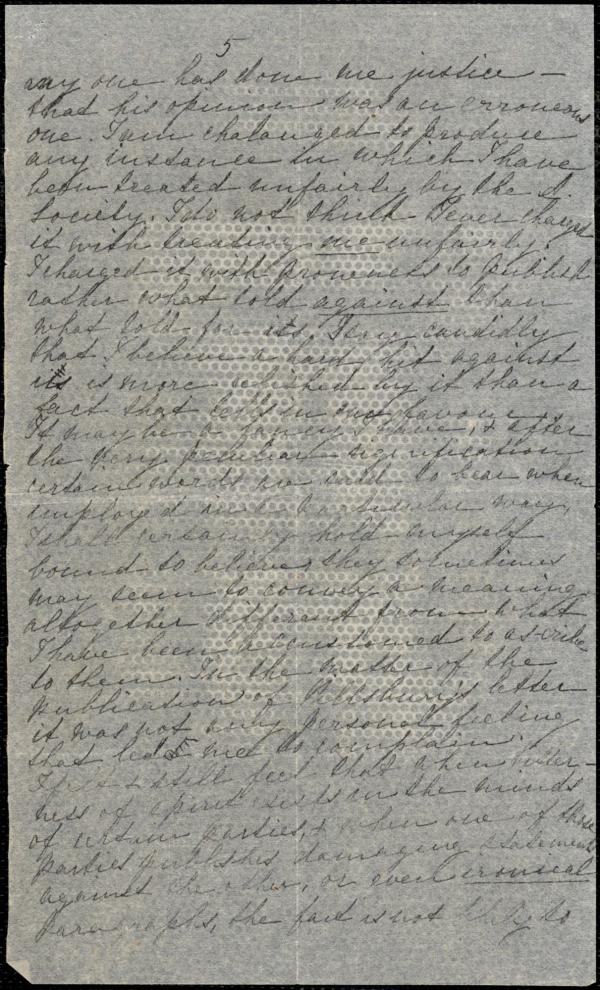 5
any one has done me justice –
that his opinion was an erroneous
one. I am chalanged to produce
any instance in which I have
been treated unfairly by the A.
Society. I do not think I ever charged
it with treating me unfairly.
I charged it with proneness to publish
rather what told against than
what told for us. I say candidly
that I believe a hard hit against
us is more relished by it than a
fact that tells in our favour.
It may be a fancy I have, & after
the very peculiar signification
certain words are said to bear when
employed in a particular way,
I shall certainly hold myself
bound to believe they sometimes
may seem to convey a meaning
altogether different from what
I have been accustomed to ascribe
to them. In the matter of the
publication of Pillsbury's letter
it was not any personal feeling
that led me to complain.
I felt & still feel that when bitter-
ness of spirit exists in the minds
of certain parties, & when one of those
parties publishes damaging statements
against the other, or even ironical
paragraphs, the fact is not likely to